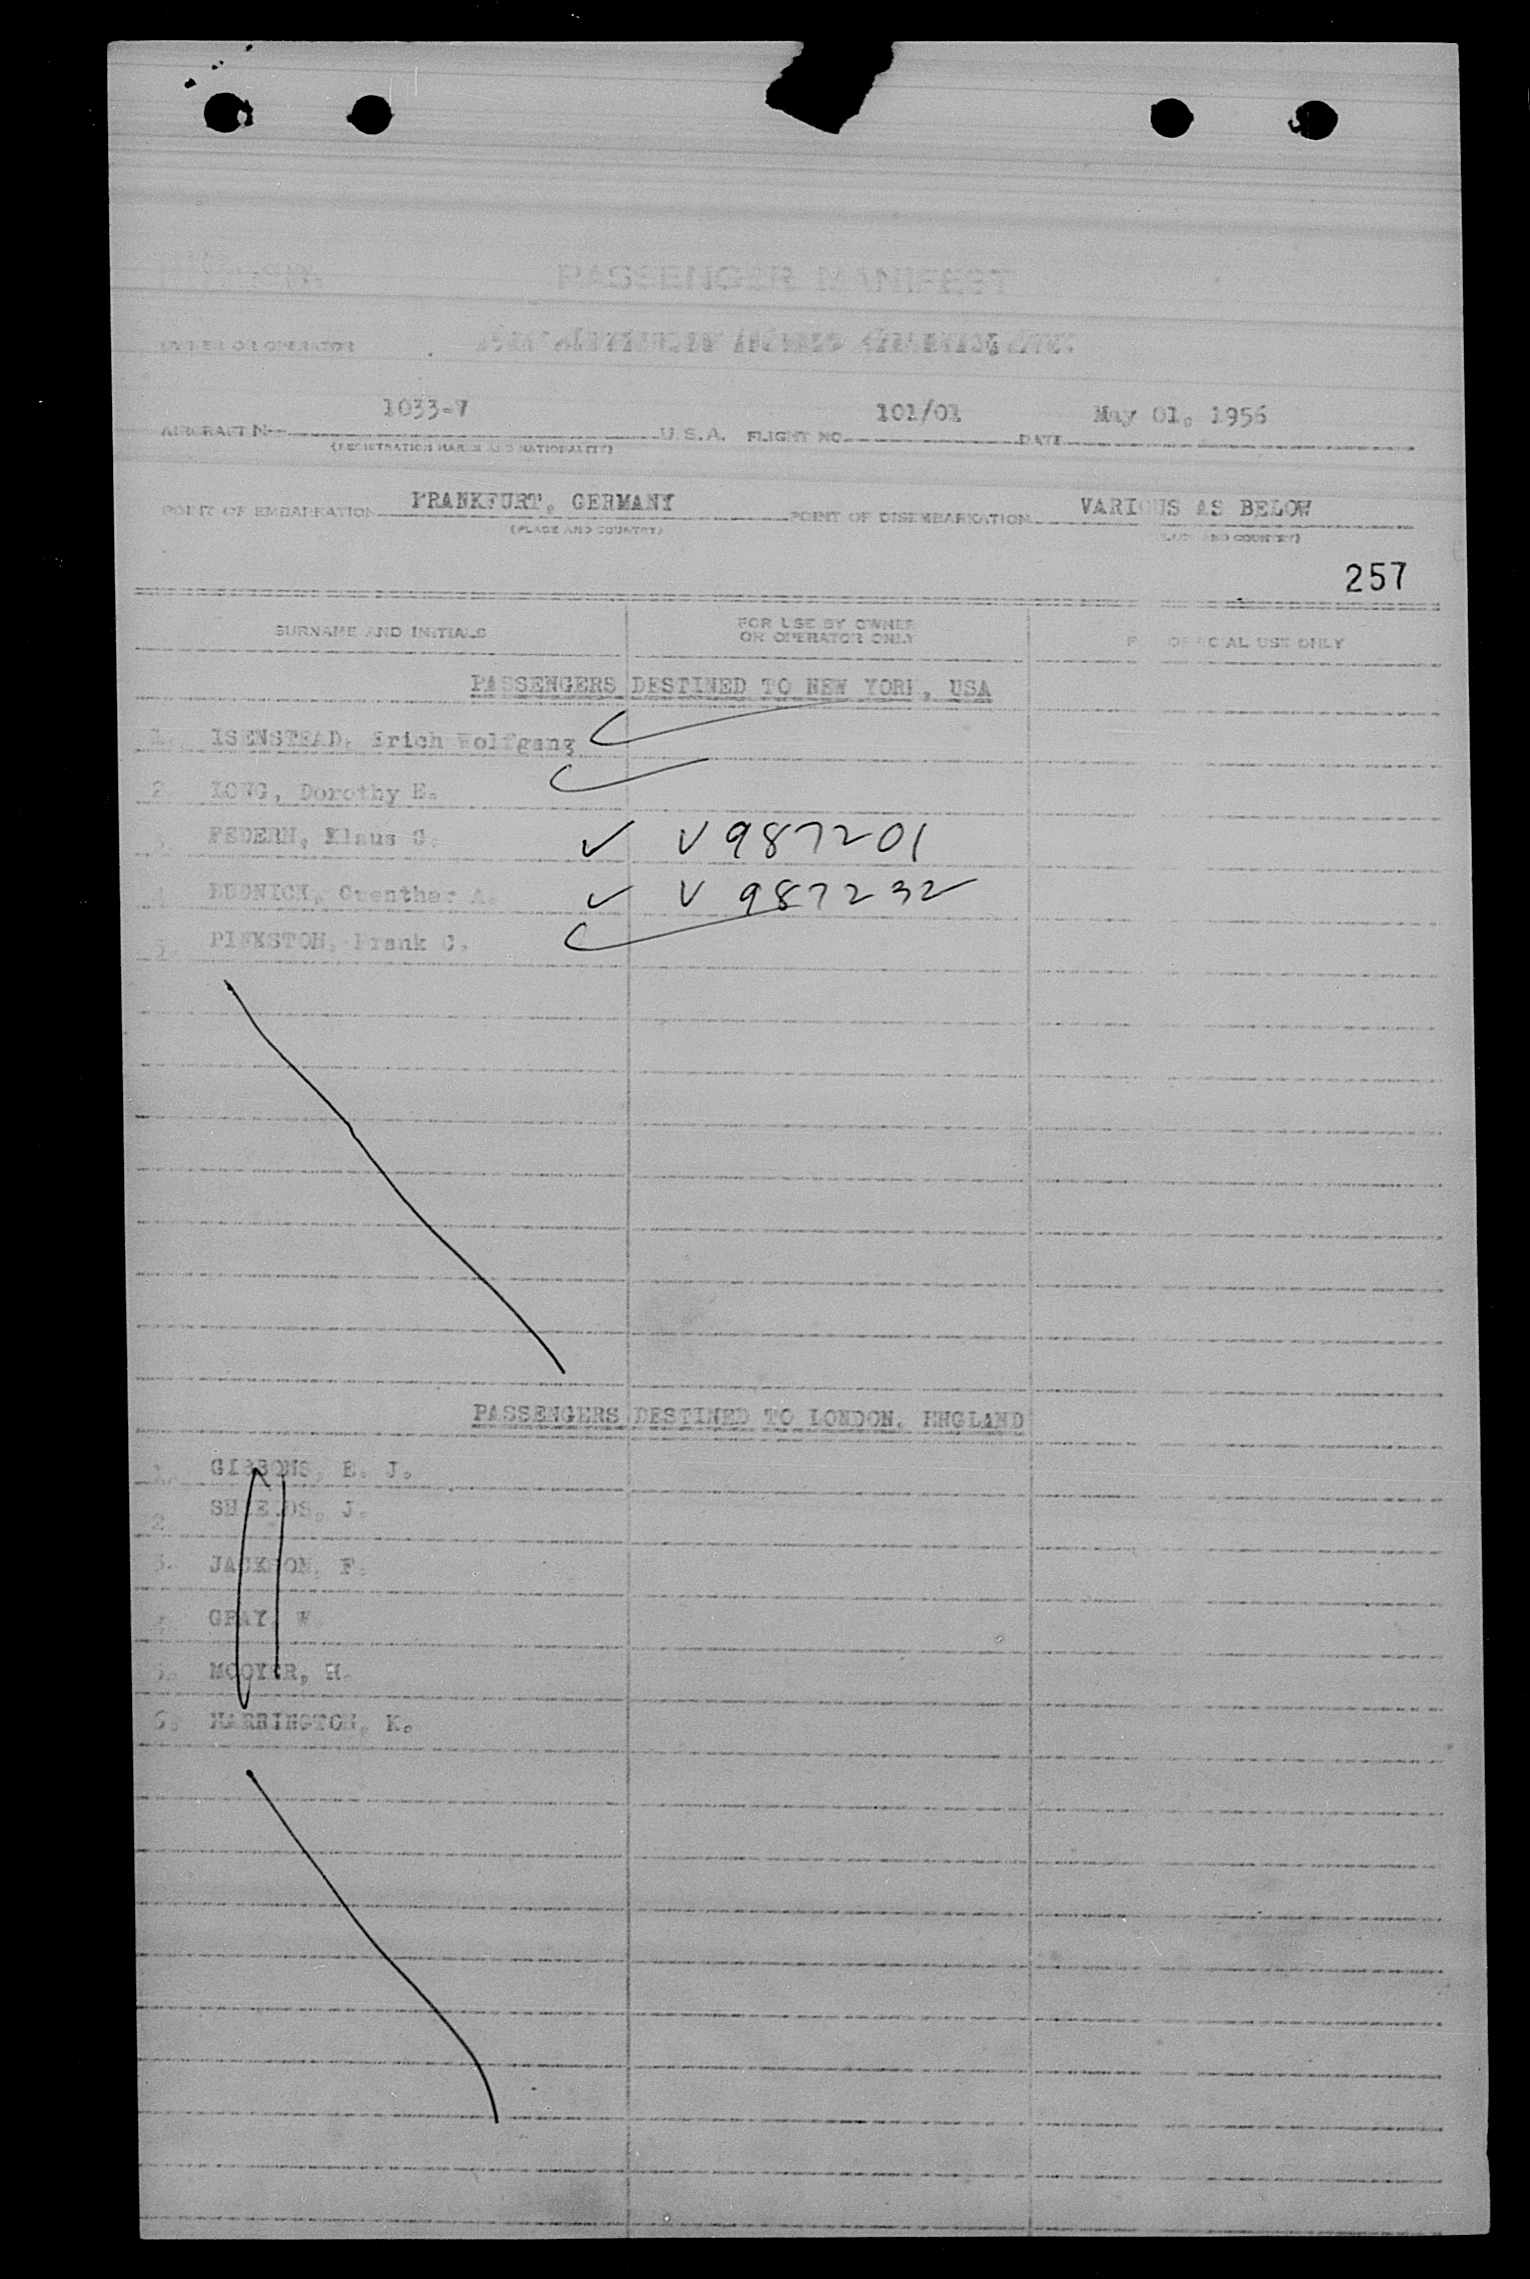 PASSENGER MANIFEST
OWNER OR OPERATOR
1033-7 101/01 May 01, 1956
AIRCRAFT N U.S.A. FLIGHT NO. DATE
(REGISTRATION MARKS AND NATIONALITY)
FRANKFURT, GERMANY VARIOUS AS BELOW
POINT OF EMBARKATION POINT OF DISEMBARKATION
(PLACE AND COUNTRY) (PLACE AND COUNTRY)
257
SURNAME AND INITIALS FOR USE BY OWNER OR OPERATOR ONLY FOR OFFICIAL USE ONLY
PASSENGERS DESTINED TO NEW YORK, USA
1. ISENSTEAD, Erich Wolfgang
2. LONG, Dorothy E.
3. FEDERN, Klaus G. V987201
4. Guenther A. V 987232
5. PINKSTON, Frank C.
PASSENGERS DESTINED TO LONDON, ENGLAND
1. GIBBONS, E. J.
2. SHIELDS, J.
3. JACKSON, F.
4. GRAY, W.
5. MOOYER, H.
6. HARRINGTON, K.